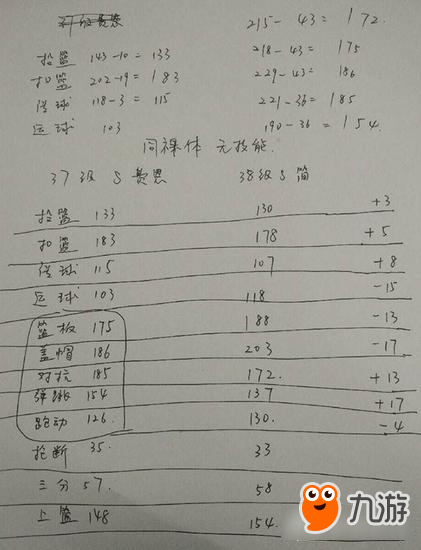 215-43=172
投篮 143-10=133 218-43=175
扣篮 202-19=183 229-43= 186
传球 118-3=115 221-36=185
运球 103 190-36=154
同裸体 无技能.
37级 S 费恩 38级 S 简
投篮 133 130 +3
扣篮 183 178 +5
传球 115 107 +8
运球 103 118 -15
篮板 175 188 -13
盖帽 186 203 -17
对抗 185 172. +13
弹跳 154 137 +17
跑动 126. 130. -4
抢断 35. 33
三分 57. 58
上篮 148 154.
九游